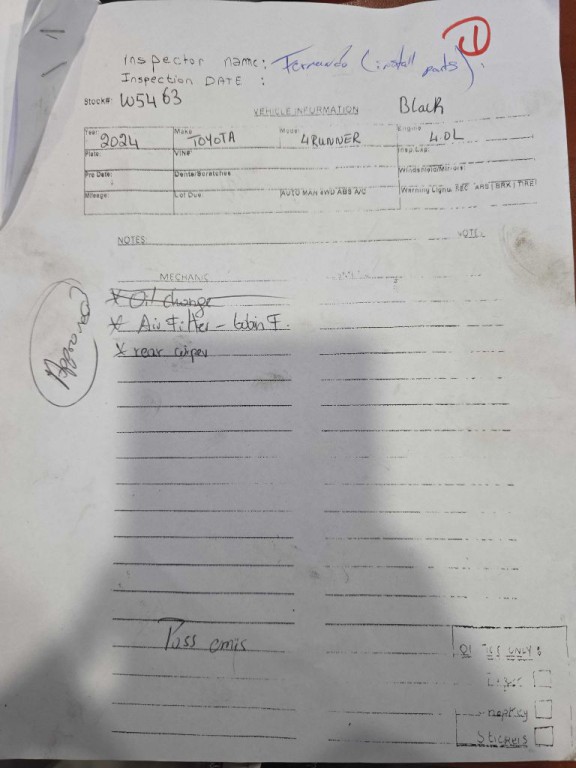 1
Inspector name: Fernando (install parts).
Inspection DATE :
Stock#: W5463
Black
VEHICLE INFORMATION
Year: 2024 Make TOYOTA Model 4RUNNER Engine 4.0L
Plate: VIN#
Pro Date: Dents/Scratches Windshield/Mirrors:
Mileage: Lot Due: AUTO MAN 4WD ABS A/C Warning Lights
NOTES:
MECHANIC
* Oil change
* Air Filter - Cabin F.
* rear wiper
Approved
Pass emis
ONLY:
Stickers